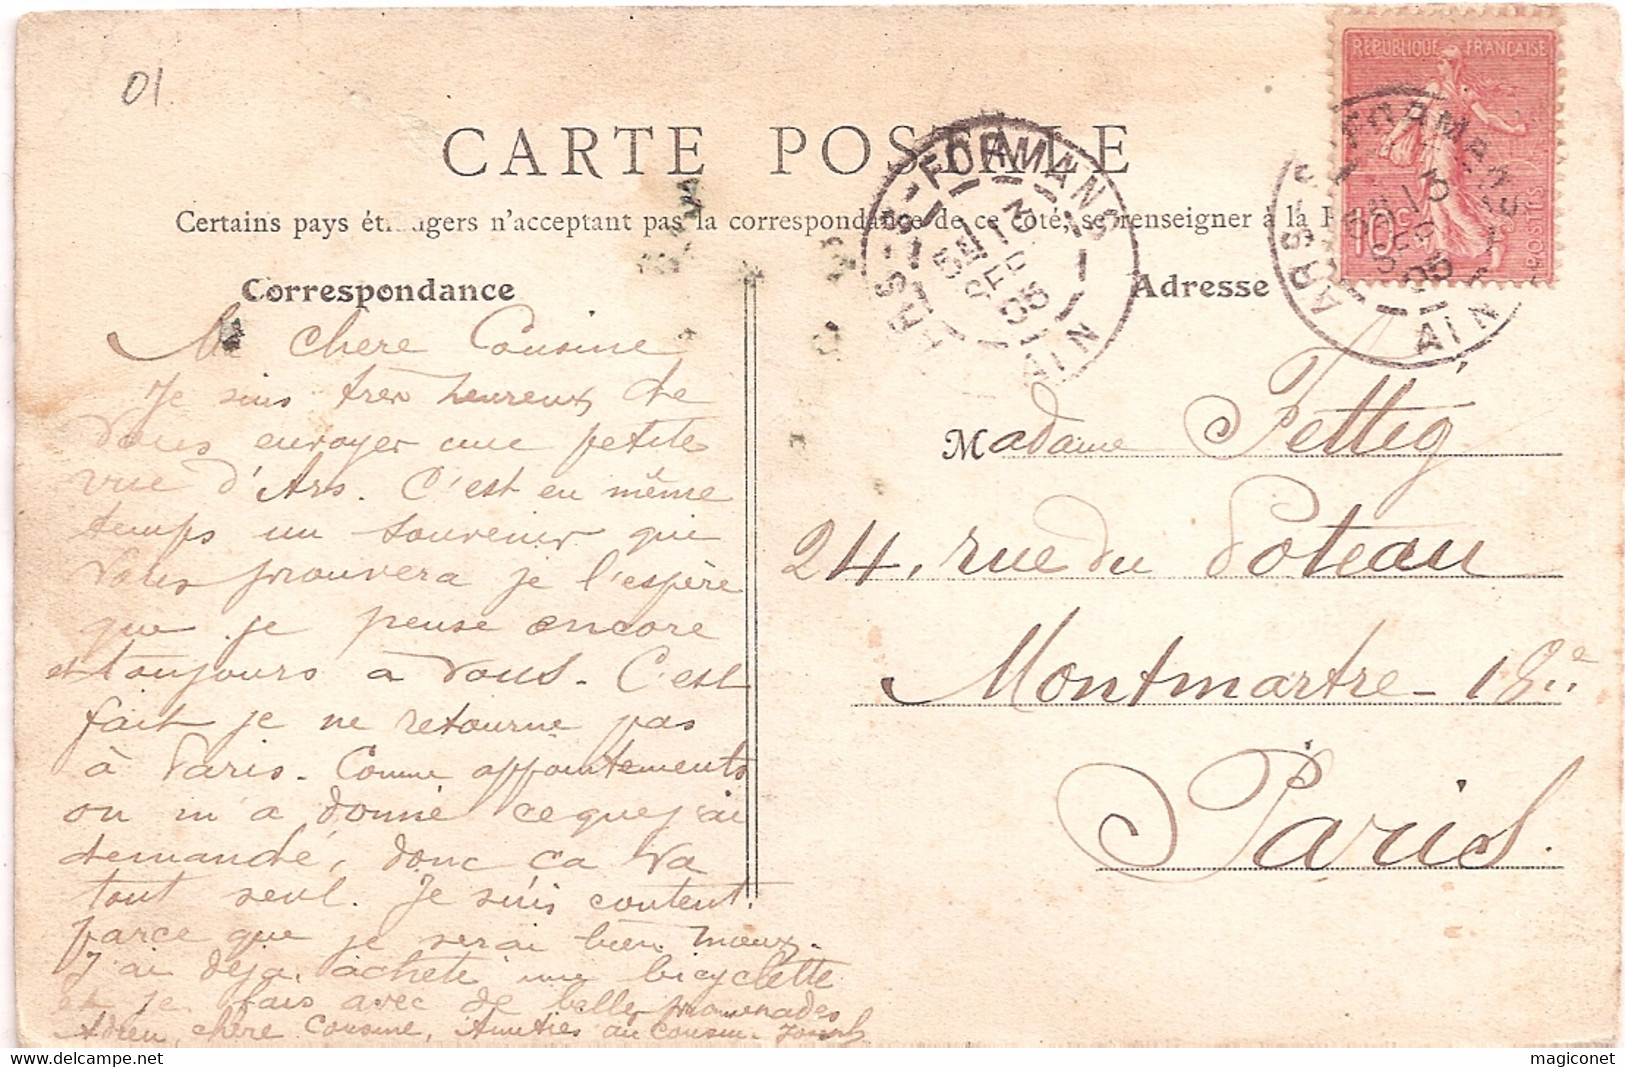 01
CARTE POSTALE
Certains pays étrangers n'acceptant pas la correspondance de ce côté, se renseigner à la
Correspondance
Adresse
REPUBLIQUE FRANCAISE
10 c
POSTES
ARS-S-FORMANS
13
SEPT
05
AIN
ARS-S-FORMANS
13
SEPT
05
AIN
Ma chère Cousine
Je suis très heureux de
vous envoyer une petite
vue d'Ars. C'est en même
temps un souvenir qui
vous prouvera je l'espère
que je pense encore
et toujours à vous. C'est
fait je ne retourne pas
à Paris. Comme appointements
on m'a donné ce que j'ai
demandé, donc ça va
tout seul. Je suis content
parce que je serai bien mieux.
J'ai déjà acheté une bicyclette
et je fais avec de belles promenades
Adieu, chère Cousine, Amitiés au Cousin. Joseph
Madame Fettig
24, rue du Poteau
Montmartre - 18e
Paris.
magiconet